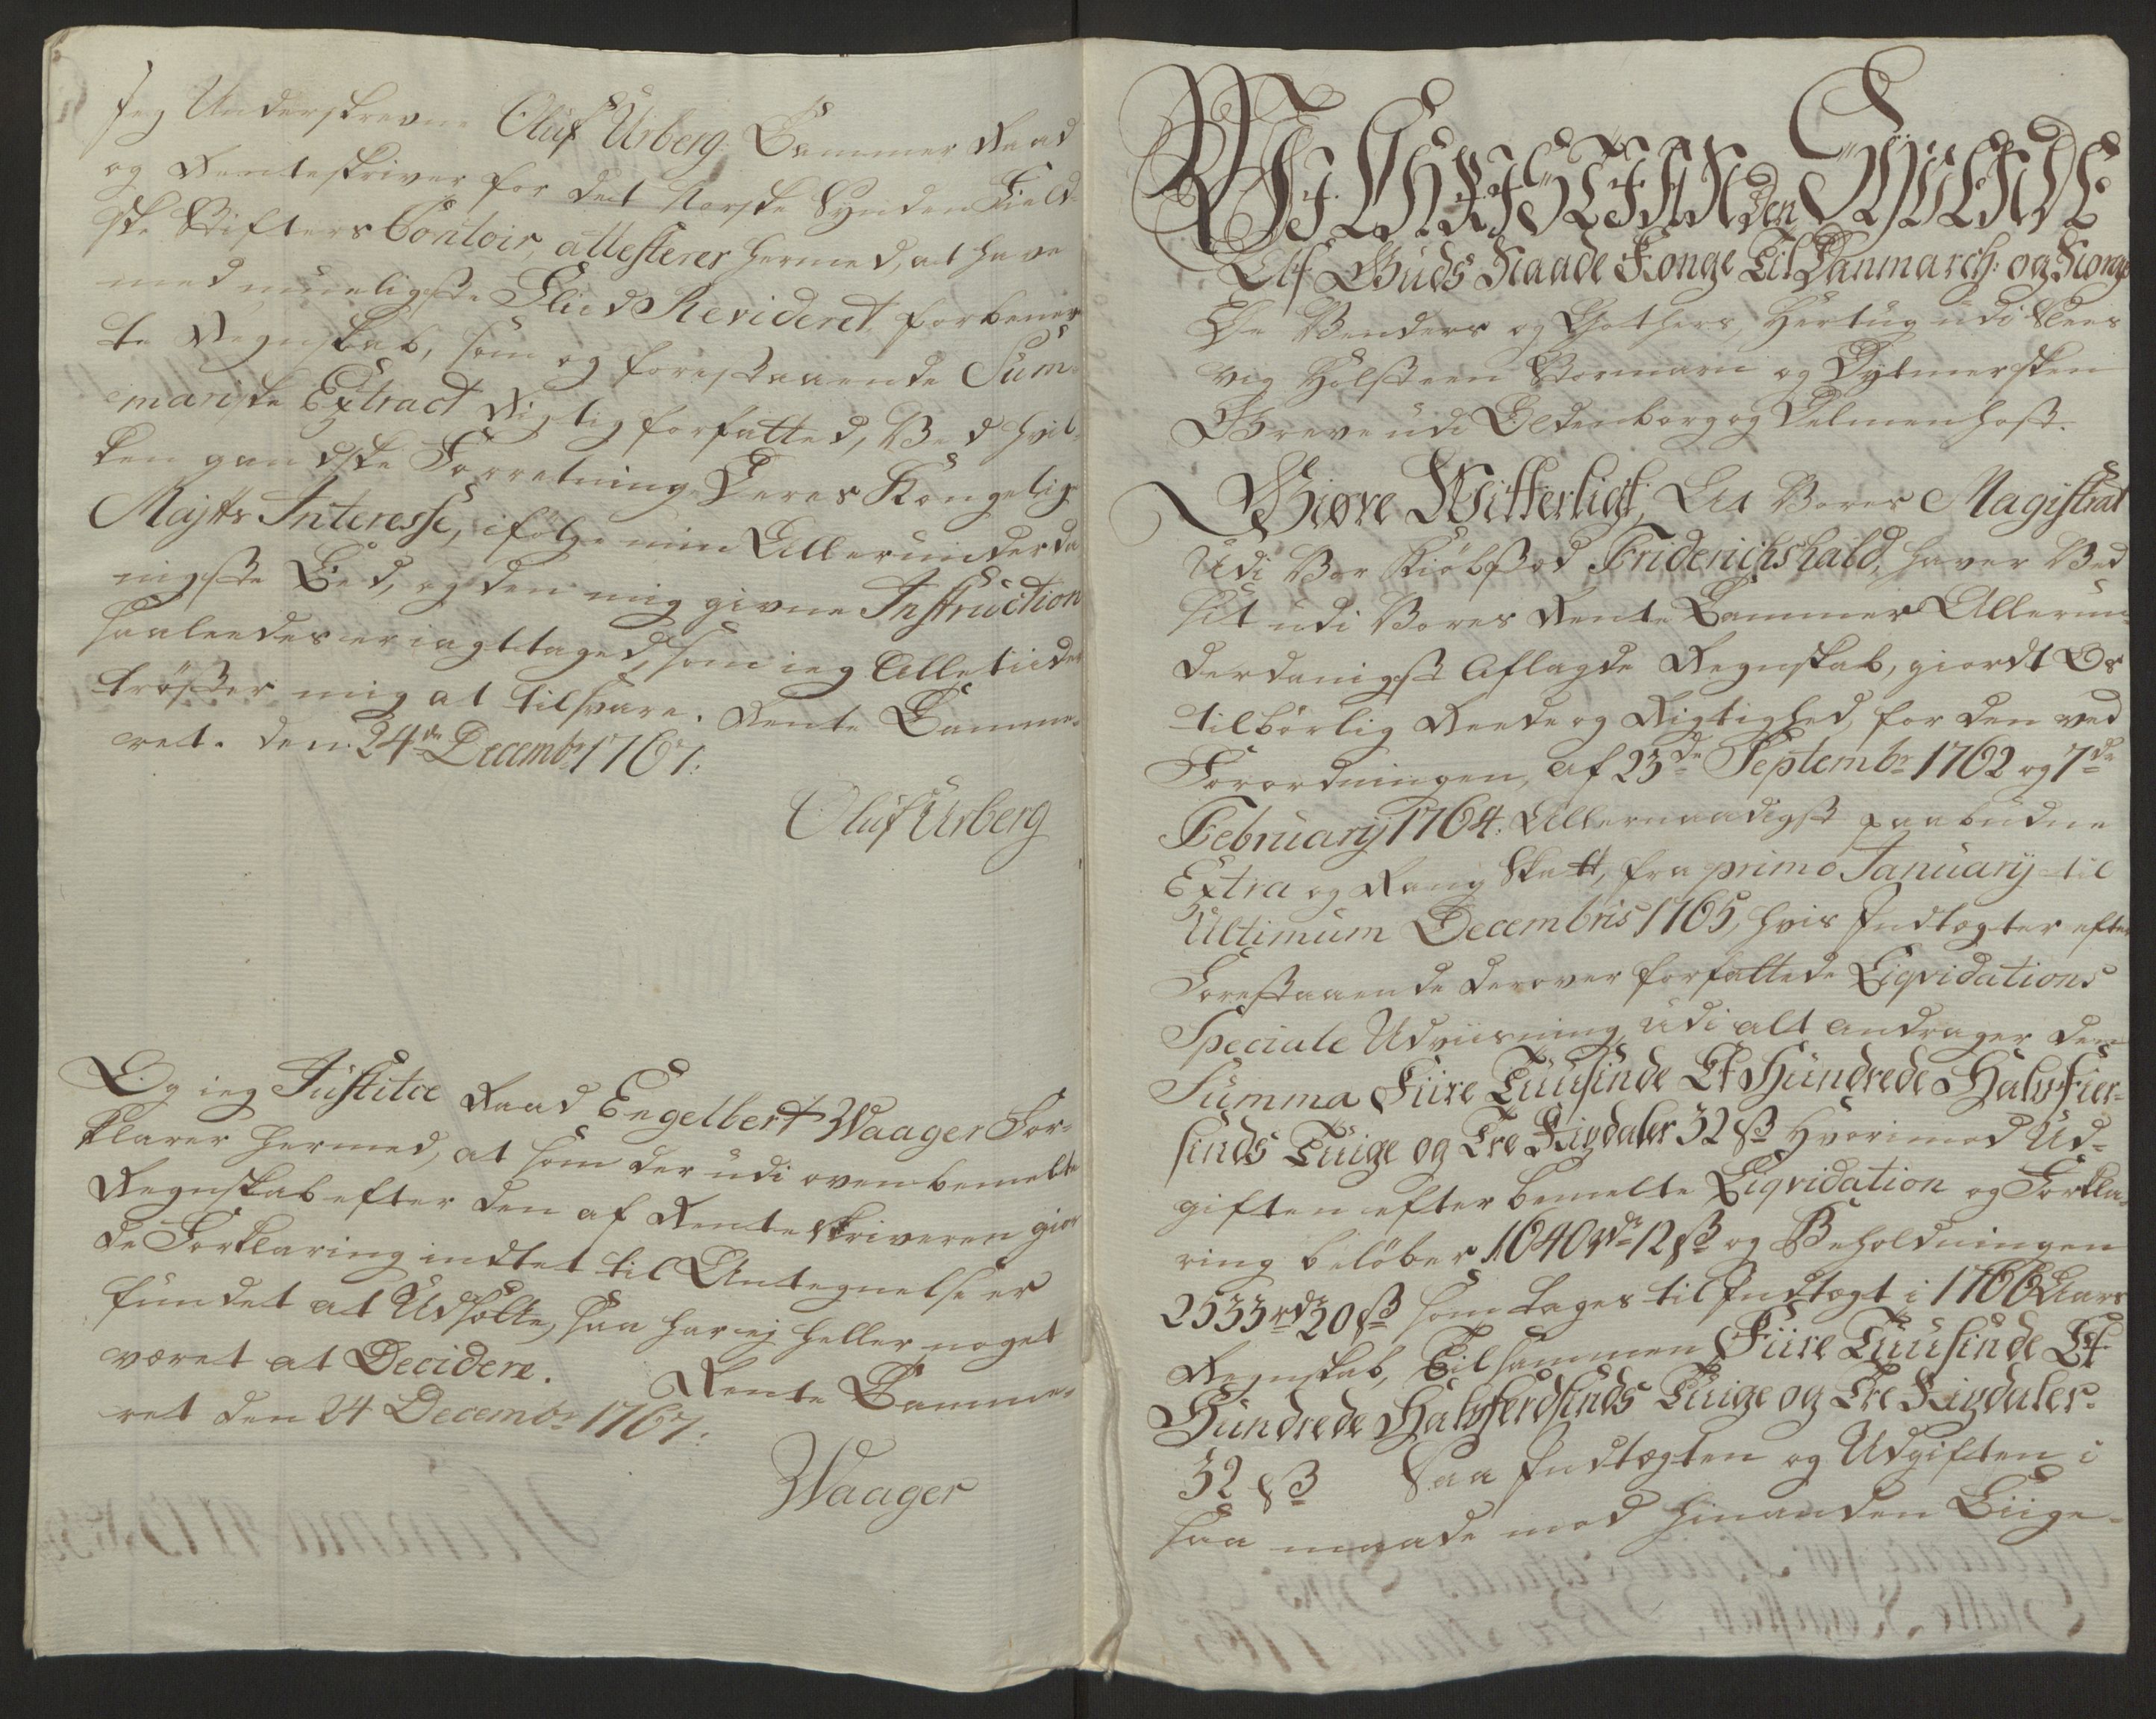 Jeg Underskrevne Oluf Urberg: Cammer Raad
og Renteskriver for det Norske Synden Field-
ske Stifters Contoir, attesterer hermed, at have
med mueligste Fliid Revideret forbenev-
te Regnskab, som og forestaaende Sum-
mariske Extract Rigtig forfatted, Ved hvil-
ken gandske Forretning Deres Kongelig
Maytts Interesse, ifølge min Allerunderda
nigste Eed, og den mig givne Instruction
saaledes er iagttaged, som ieg Alletiider
trøster mig at tilsvare. Rente Camme-
ret. den 24de Decembr 1767.
Oluf Urberg
Og ieg Justitce Raad Engelbert Waager For-
klarer hermed, at som der udi ovenbemelte
Regnskab efter den af Renteskriveren gior
de Forklaring indtet til Antegnelse er
fundet at Udsætte, saa har ej heller noget
været at Decidere. Rente Camme-
ret den 24 Decembr 1767.
Waager
VJ CHRISTIAN den SYVENDE
Af Guds Naade Konge Til Danmarch: og Norge
De Venders og Gothers, Hertug udi Slees
vig Holsteen Stormarn og Dytmersken
Greve udi Oldenborg og Delmenhost.
Giøre Witterligt, At Vores Magistrat
Udi Vor Kiøbstad Friderichshald, haver Ved
sit udi Vores Rente Cammer Allerun-
derdanigst Aflagde Regnskab, giordt Os
tilbørlig Reede og Rigtighed for den ved
Forordningen, af 23de Septembr 1762 og 7de
February 1764. Allernaadigst paabudne
Extra og Rang Skatt, fra primo January til
Ultimum Decembris 1765, hvis Indtægter efter
Forestaaende derover forfattede Liqvidations
Speciale Udviisning, udi alt andrager den
Summa Fiire Tuusinde Et Hundrede Halvfier-
sinds Tuige og Tre Rigdaler 32 ß Hvorimod Ud-
giften efter bemelte Liqvidation og Forkla-
ring beløber 1640 rdr 12 ß og Beholdningen
2533 rd 20 ß som tages til Indtægt i 1766 Aars
Regnskab, Tilsammen Fiire Tuusinde Et
Hundrede Halvfierdsinds Tuige og Tre Rigdaler
32 ß Saa Indtægten og Udgiften i
saa maade mod hinanden Liige-